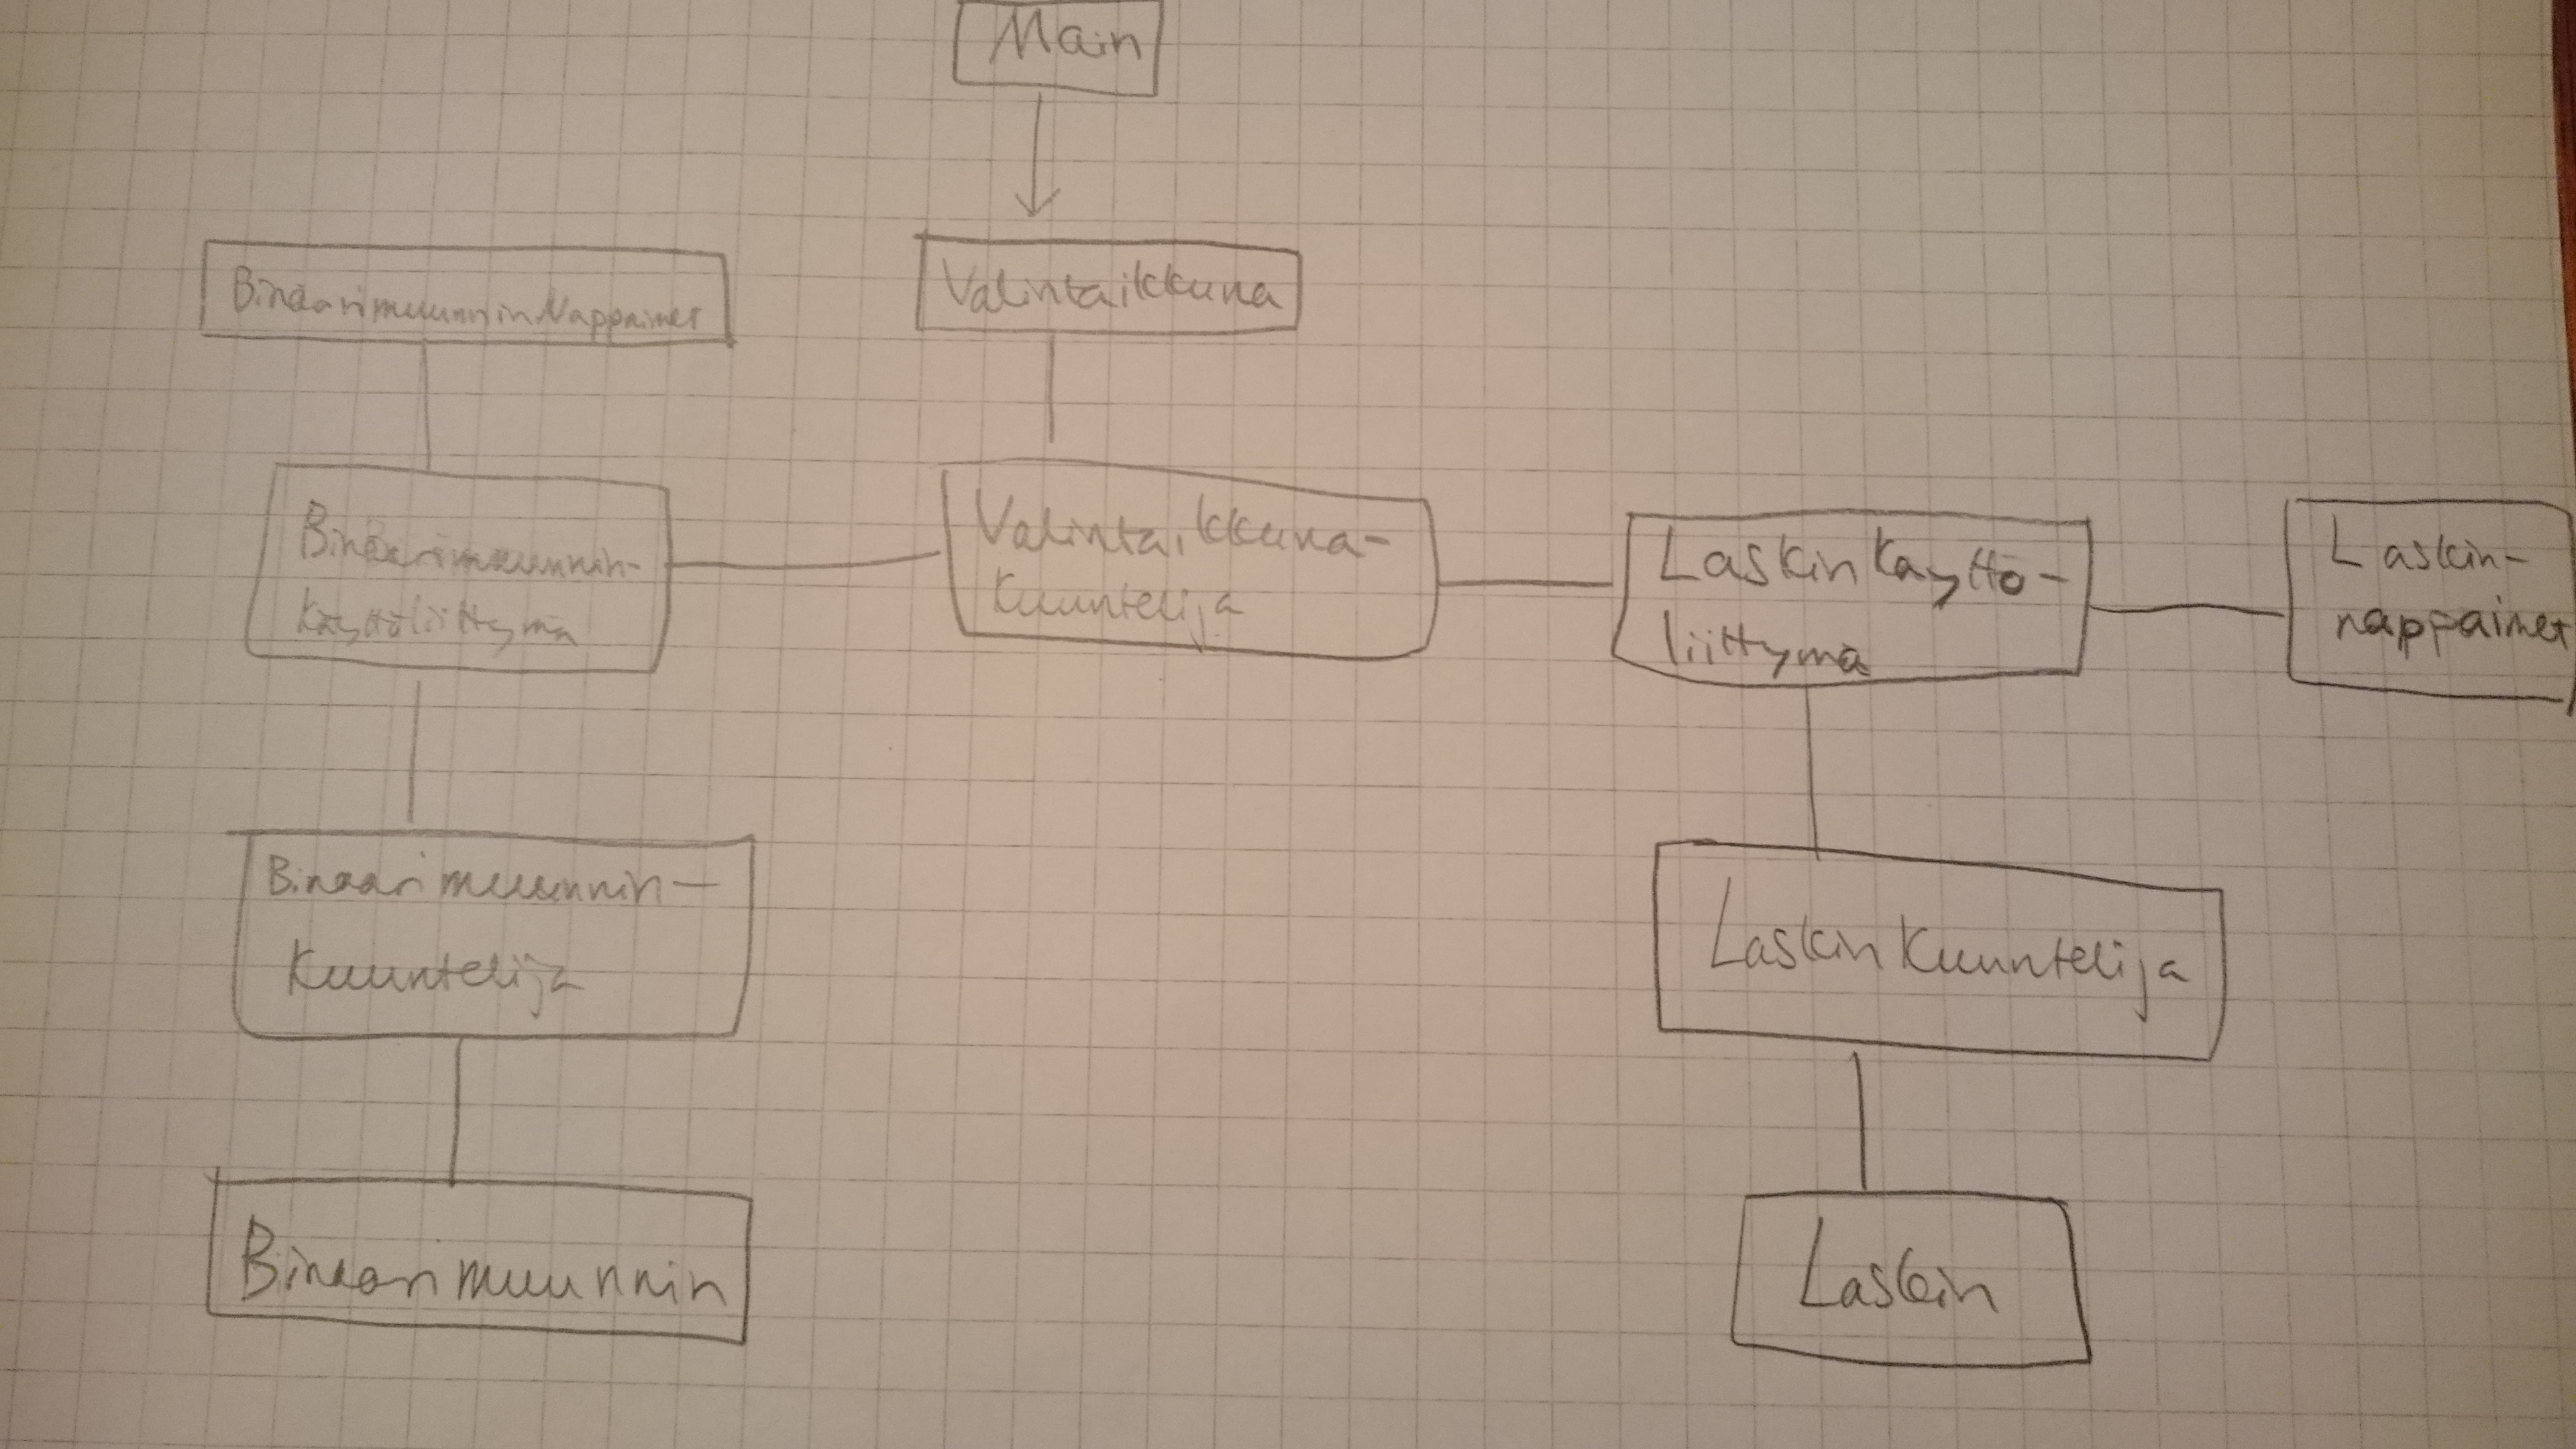 Main
BinaarimuunninNappaimet
Valintaikkuna
Binäärimuunnin-
käyttöliittymä
Valintaikkuna-
kuuntelija
Laskinkäyttö-
liittymä
Laskin-
nappaimet
Binaarimuunnin-
kuuntelija
Laskinkuuntelija
Binaarimuunnin
Laskin